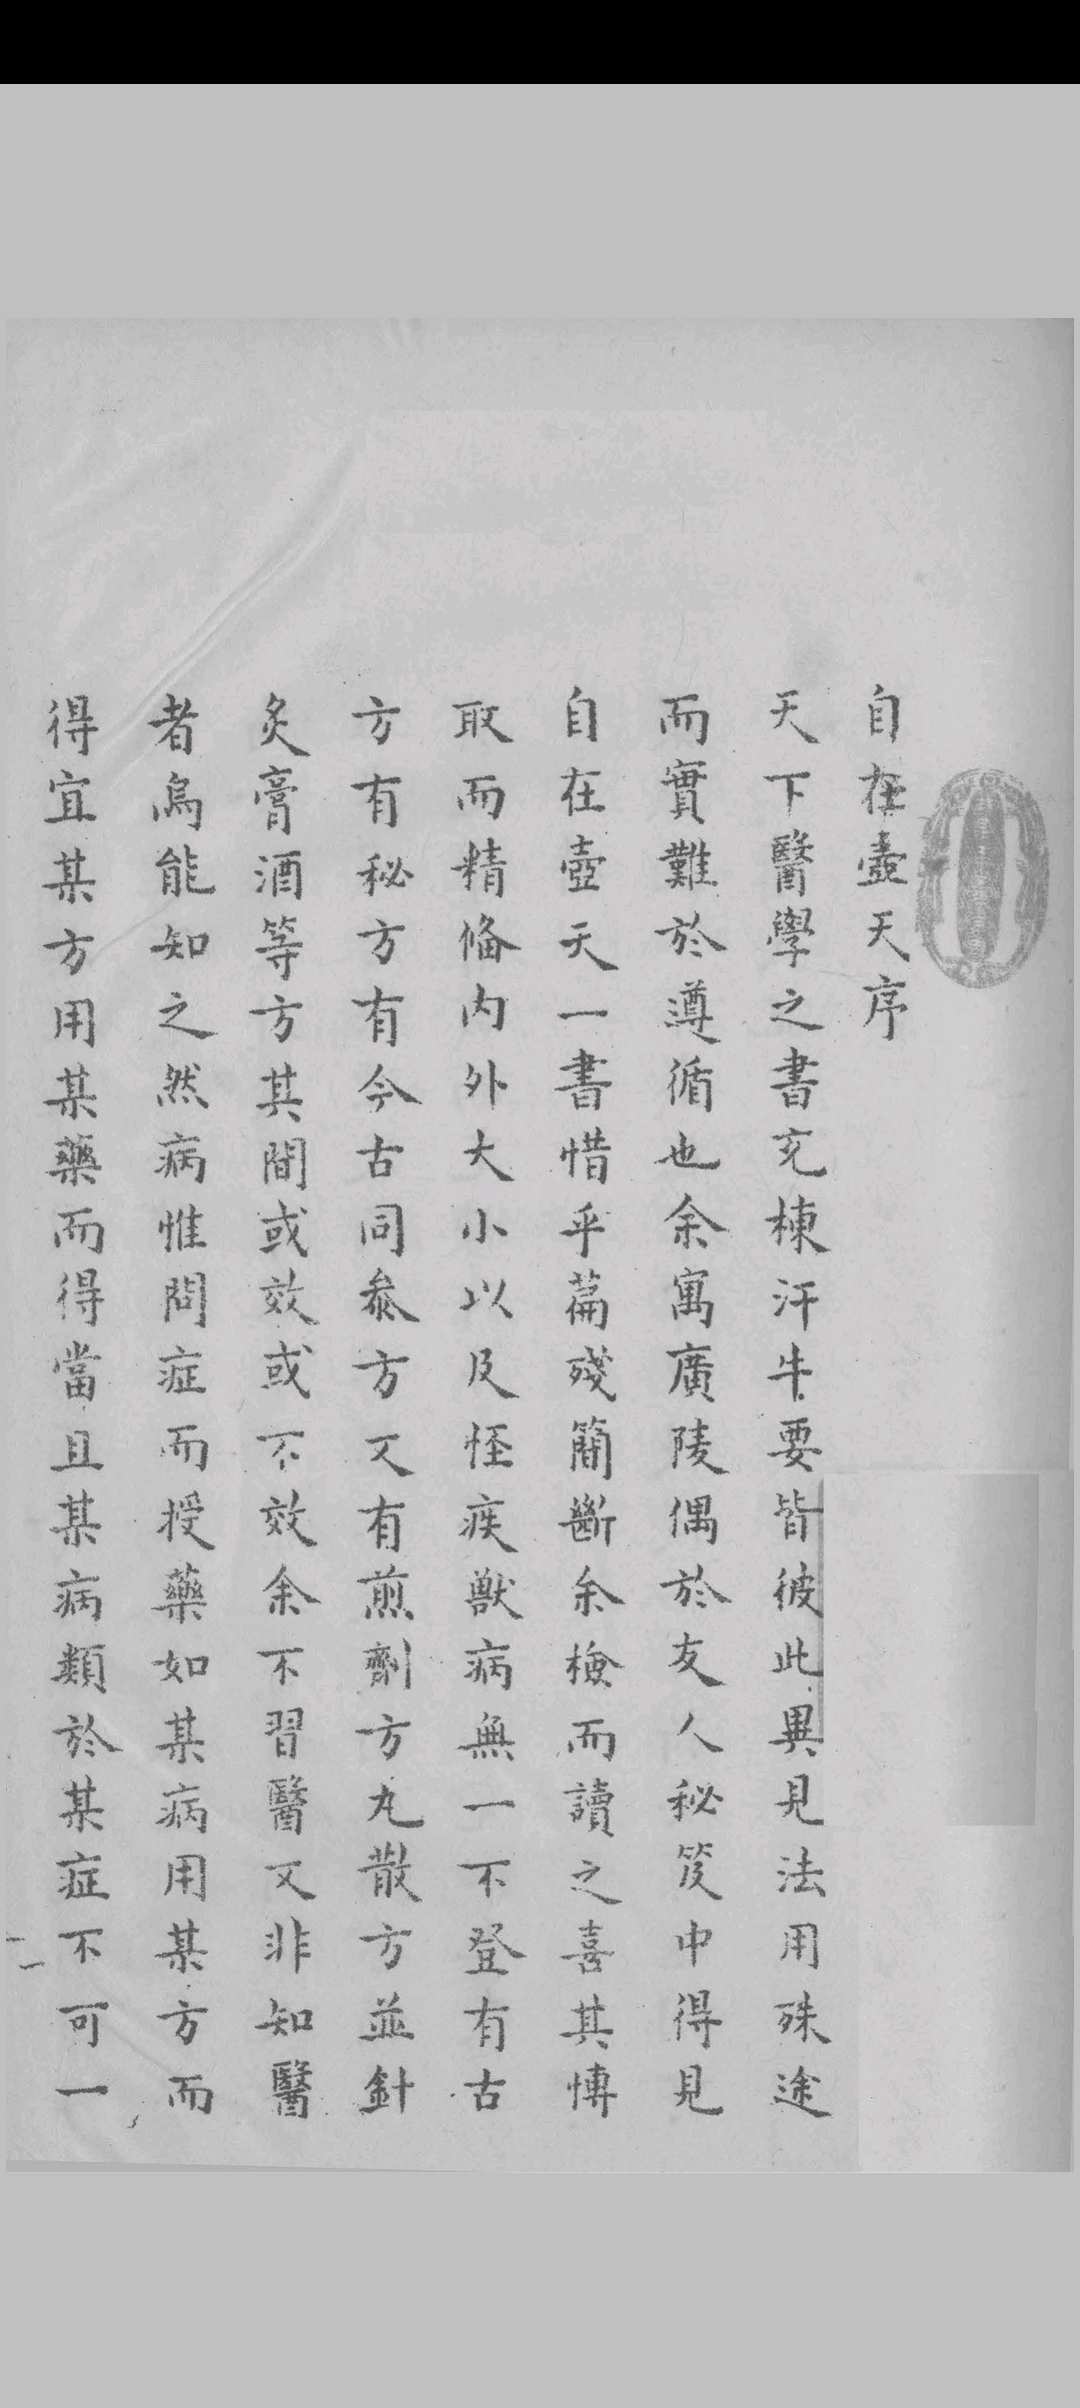 自在壺天序
天下醫學之書充棟汗牛要皆彼此異見法用殊途
而實難於遵循也余寓廣陵偶於友人秘笈中得見
自在壺天一書惜乎萹殘簡斷余檢而讀之喜其博
取而精俻内外大小以及怪疾獸病無一不登有古
方有秘方有今古同叅方又有煎劑方丸散方並針
灸膏酒等方其間或效或不效余不習醫又非知醫
者烏能知之然病惟問症而授藥如某病用某方而
得宜某方用某藥而得當且某病類於某症不可一